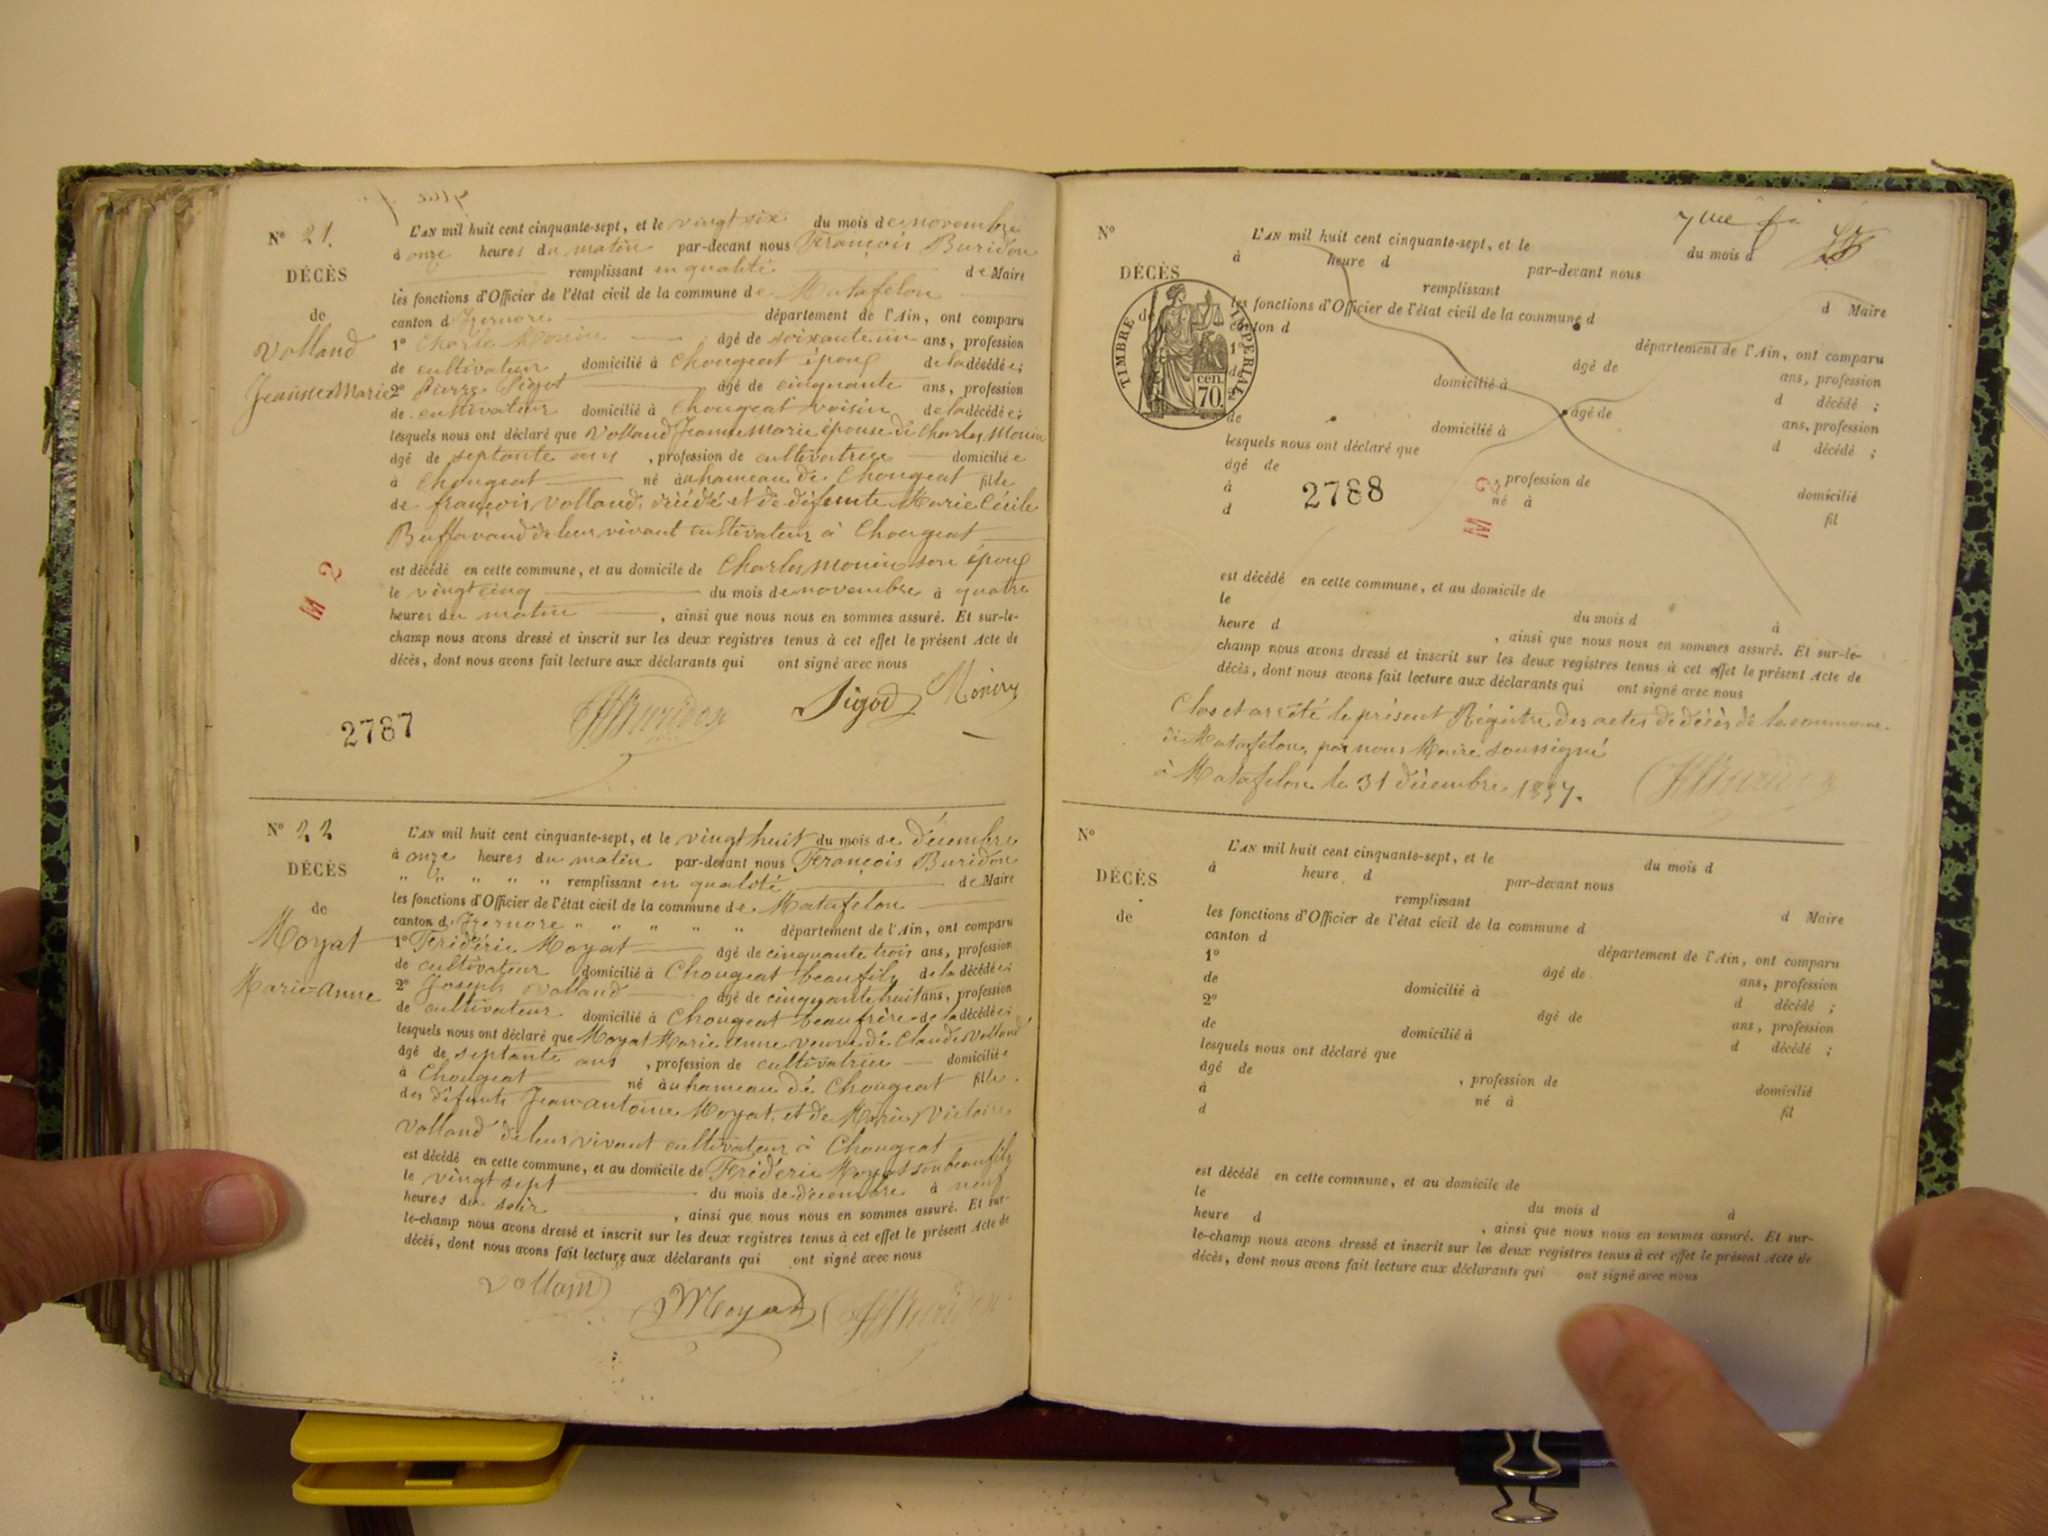 N° 21.
DÉCÈS
de
Volland
Jeanne Marie
L'AN mil huit cent cinquante-sept, et le vingt six du mois de novembre
à onze heures du matin par-devant nous François Buridon
remplissant en qualité de Maire
les fonctions d'Officier de l'état civil de la commune de Matafelon
canton d'Izernore département de l'Ain, ont comparu
1° Monin âgé de soixante un ans, profession
de cultivateur domicilié à Chougeat époux de la décédée;
2° Pierre Sigot âgé de cinquante ans, profession
de cultivateur domicilié à Chougeat voisin de la décédée;
lesquels nous ont déclaré que Volland Jeanne Marie épouse de Charles Monin
âgé de septante ans, profession de cultivatrice domiciliée
à Chougeat né au hameau de Chougeat fille
de françois Volland, décédé et de défunte Marie Cécile
Buffavand de leur vivant cultivateur à Chougeat
est décédé en cette commune, et au domicile de Charles Monin son époux
le vingt cinq du mois de novembre à quatre
heures du matin, ainsi que nous nous en sommes assuré. Et sur-le-
champ nous avons dressé et inscrit sur les deux registres tenus à cet effet le présent Acte de
décès, dont nous avons fait lecture aux déclarants qui ont signé avec nous
Buridon Sigod Monin
M 2
2787
N° 22
DÉCÈS
de
Moyat
Marie-Anne
L'AN mil huit cent cinquante-sept, et le vingt huit du mois de décembre
à onze heures du matin par-devant nous François Buridon
" " " " " remplissant en qualité de Maire
les fonctions d'Officier de l'état civil de la commune de Matafelon
canton d'Izernore " " " " " département de l'Ain, ont comparu
1° Fréderic Moyat âgé de cinquante trois ans, profession
de cultivateur domicilié à Chougeat beaufils de la décédée;
2° Joseph Volland âgé de cinquante huit ans, profession
de cultivateur domicilié à Chougeat beaufrère de la décédée;
lesquels nous ont déclaré que Moyat Marie Anne veuve de Claude Volland
âgé de septante ans, profession de cultivatrice domiciliée
à Chougeat né au hameau de Chougeat fille
des défunts Jean antoine Moyat, et de Marie Victoire
Volland de leur vivant cultivateur à Chougeat
est décédé en cette commune, et au domicile de Fréderic Moyat son beaufils
le vingt sept du mois de décembre à neuf
heures du soir, ainsi que nous nous en sommes assuré. Et sur-
le-champ nous avons dressé et inscrit sur les deux registres tenus à cet effet le présent Acte de
décès, dont nous avons fait lecture aux déclarants qui ont signé avec nous
Volland Moyat Buridon
N°
DÉCÈS
de
TIMBRE IMPERIAL
70 cen.
L'AN mil huit cent cinquante-sept, et le du mois d
à heure d par-devant nous
remplissant d Maire
les fonctions d'Officier de l'état civil de la commune d
canton d département de l'Ain, ont comparu
1° âgé de ans, profession
de domicilié à d décédé ;
âgé de ans, profession
de domicilié à d décédé ;
lesquels nous ont déclaré que
âgé de profession de domicilié
à né à fil
d
2788
M 2
est décédé en cette commune, et au domicile de
le du mois d à
heure d , ainsi que nous nous en sommes assuré. Et sur-le-
champ nous avons dressé et inscrit sur les deux registres tenus à cet effet le présent Acte de
décès, dont nous avons fait lecture aux déclarants qui ont signé avec nous
Clos et arrêté le présent Régistre des actes de décès de la commune
de Matafelon, par nous Maire soussigné
à Matafelon le 31 décembre 1857.
Buridon
N°
DÉCÈS
de
L'AN mil huit cent cinquante-sept, et le du mois d
à heure d par-devant nous
remplissant d Maire
les fonctions d'Officier de l'état civil de la commune d
canton d département de l'Ain, ont comparu
1° âgé de ans, profession
de domicilié à d décédé ;
2° âgé de ans, profession
de domicilié à d décédé ;
lesquels nous ont déclaré que
âgé de , profession de domicilié
à né à fil
d
est décédé en cette commune, et au domicile de
le du mois d à
heure d , ainsi que nous nous en sommes assuré. Et sur-
le-champ nous avons dressé et inscrit sur les deux registres tenus à cet effet le présent Acte de
décès, dont nous avons fait lecture aux déclarants qui ont signé avec nous